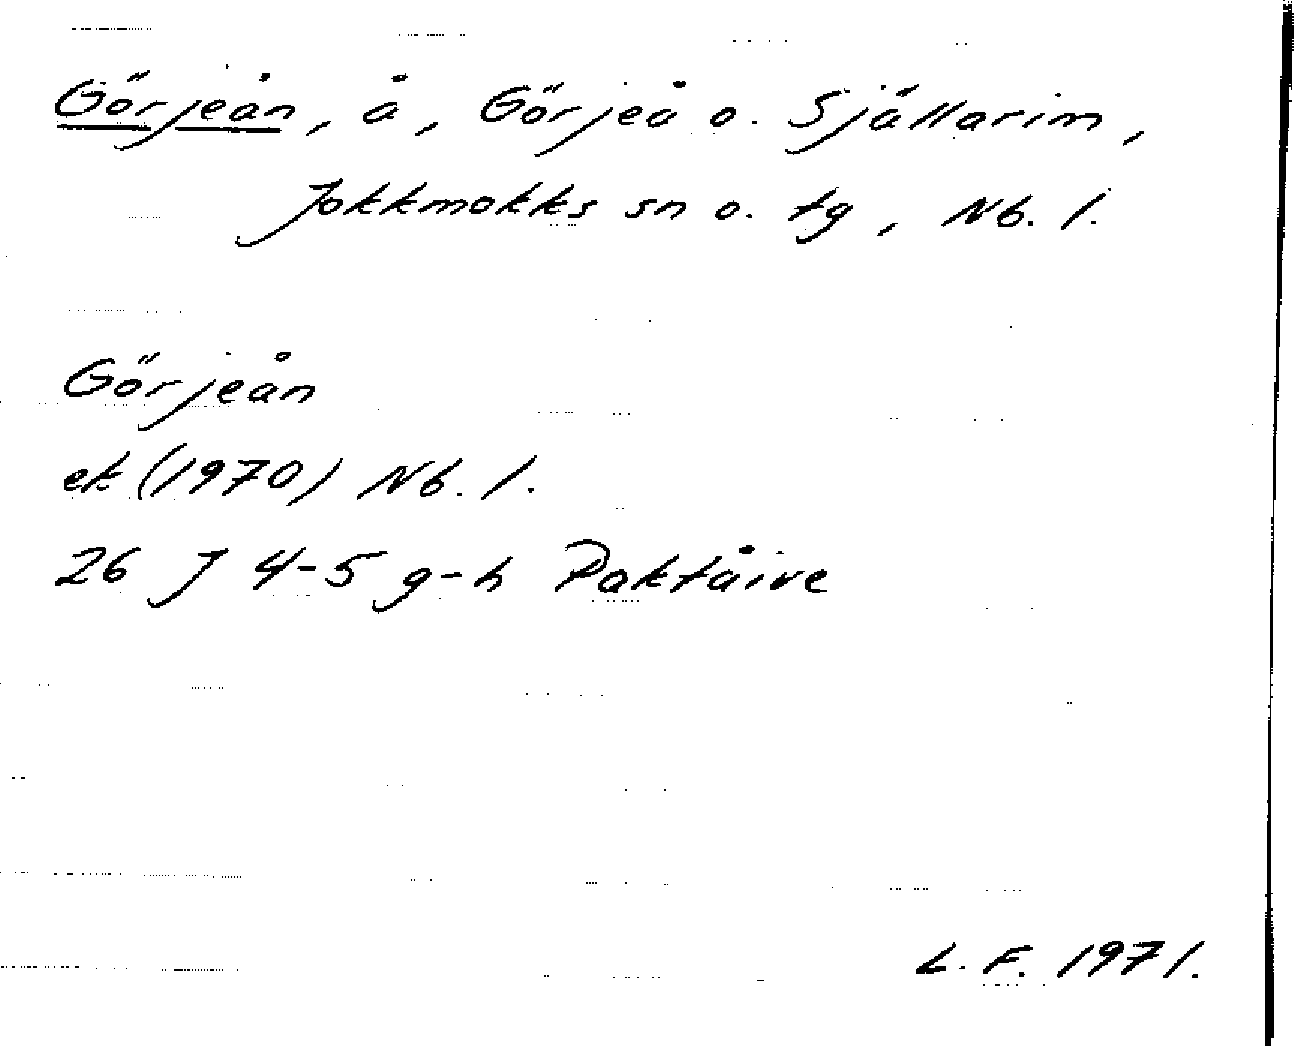 Görjeån, å, Görjeå o. Själlarim,
Jokkmokks sn o. tg, Nb. l.
Görjeån
ek (1970) Nb. l.
26 J 4-5 g-h Paktåive
L. F. 1971.